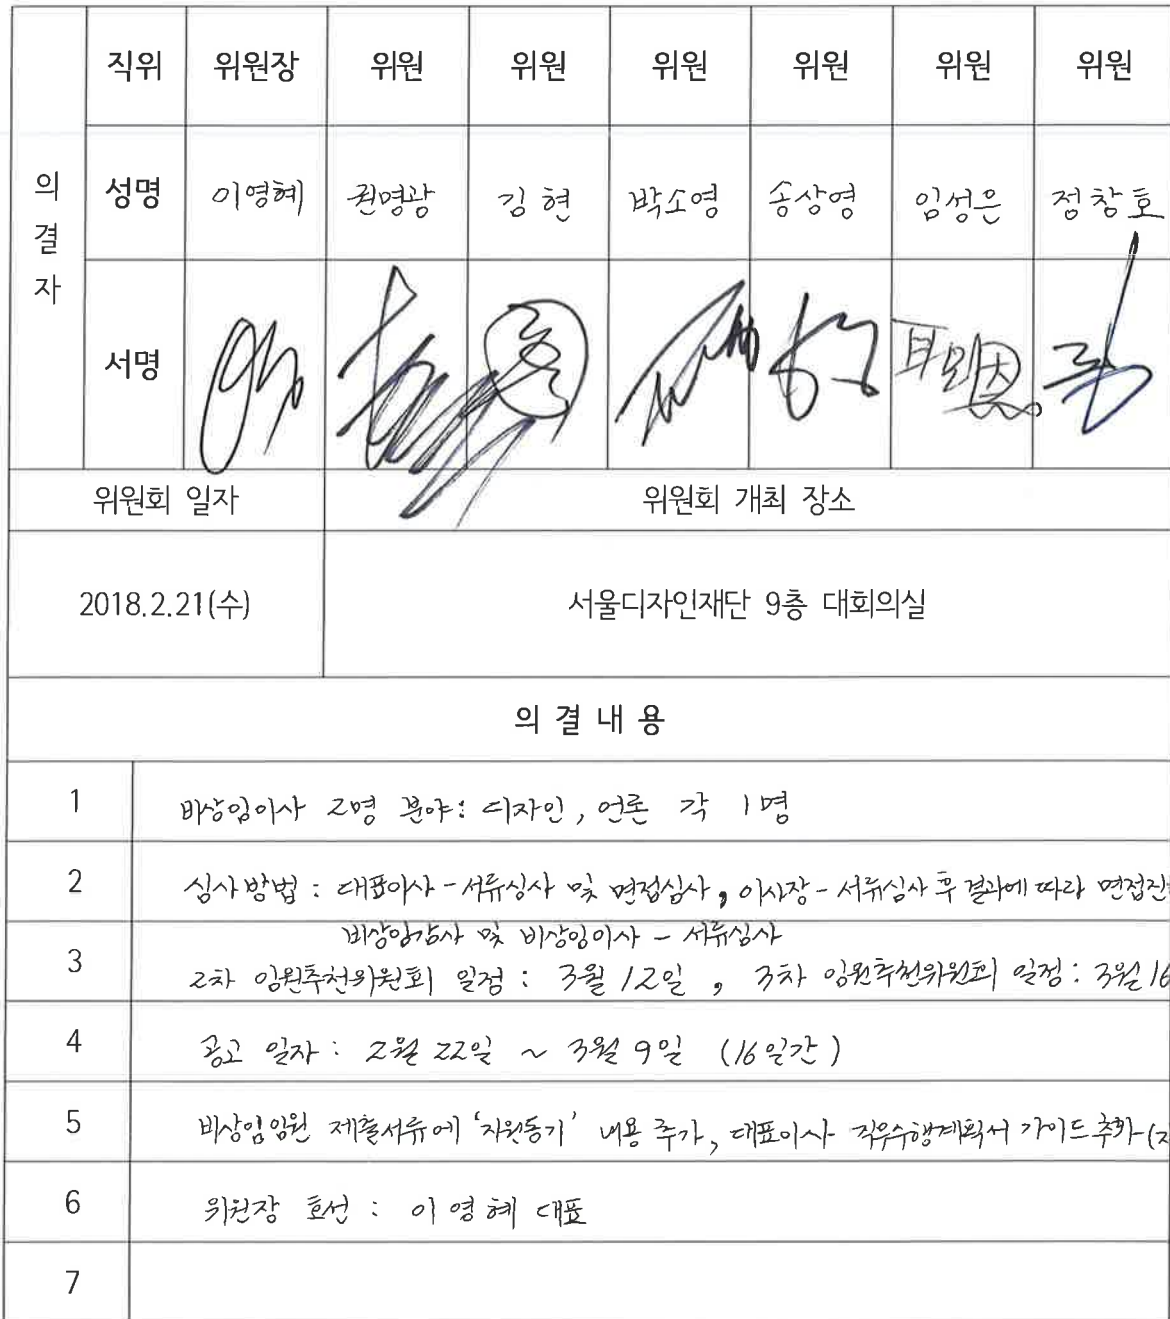 직위 위원장 위원 위원 위원 위원 위원 위원
의결자
성명 이영혜 권명광 김현 박소영 송상영 임성은 정창호
서명
위원회 일자 위원회 개최 장소
2018.2.21(수) 서울디자인재단 9층 대회의실
의 결 내 용
1 비상임이사 2명 분야: 디자인, 언론 각 1명
2 심사방법 : 대표이사 - 서류심사 및 면접심사, 이사장 - 서류심사 후 결과에 따라 면접진
비상임감사 및 비상임이사 - 서류심사
3 2차 임원추천위원회 일정 : 3월 12일, 3차 임원추천위원회 일정 : 3월 16
4 공고 일자 : 2월 22일 ~ 3월 9일 (16일간)
5 비상임임원 제출서류에 '지원동기' 내용 추가, 대표이사 직무수행계획서 가이드 추가
6 위원장 호선 : 이영혜 대표
7